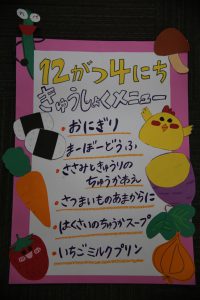 12がつ4にち
きゅうしょくメニュー
・おにぎり
・まーぼーどうふ
・ささみときゅうりの
ちゅうかあえ
・さつまいものあまからに
・はくさいのちゅうかスープ
・いちごミルクプリン